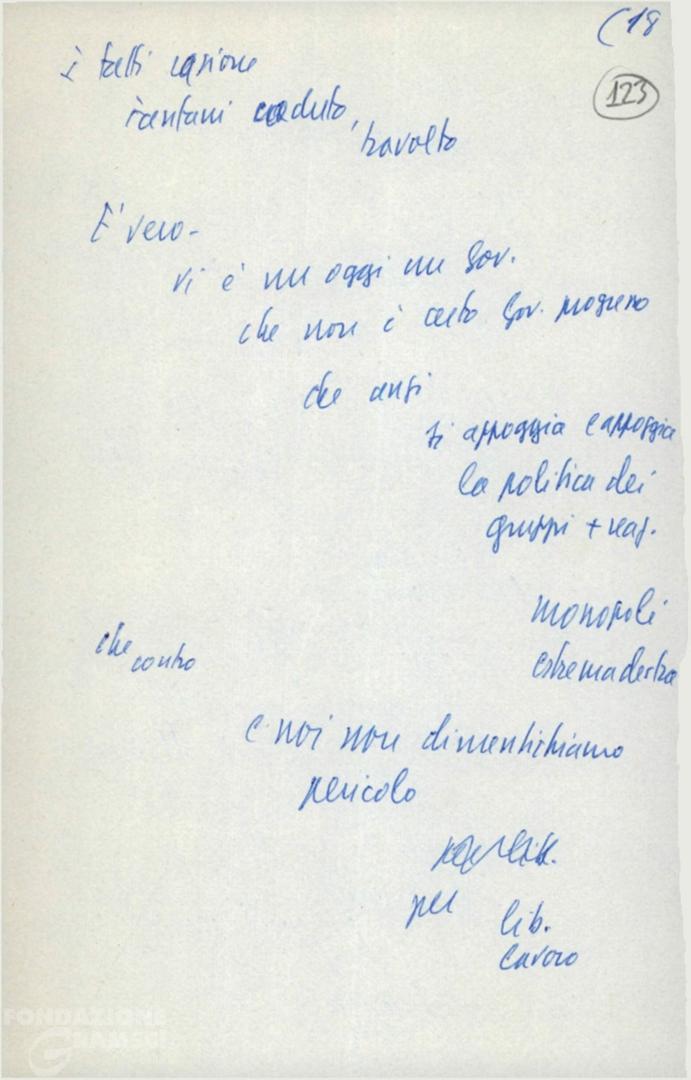 (18
123
i fatti
caduto,
travolto
E' vero -
vi è un oggi un Gov.
che non è certo Gov. progresso
che anzi
si appoggia e appoggia
la politica dei
gruppi + reaz.
monopoli
estrema destra
che contro
e noi non dimentichiamo
pericolo
per lib.
lavoro
FONDAZIONE
GRAMSCI